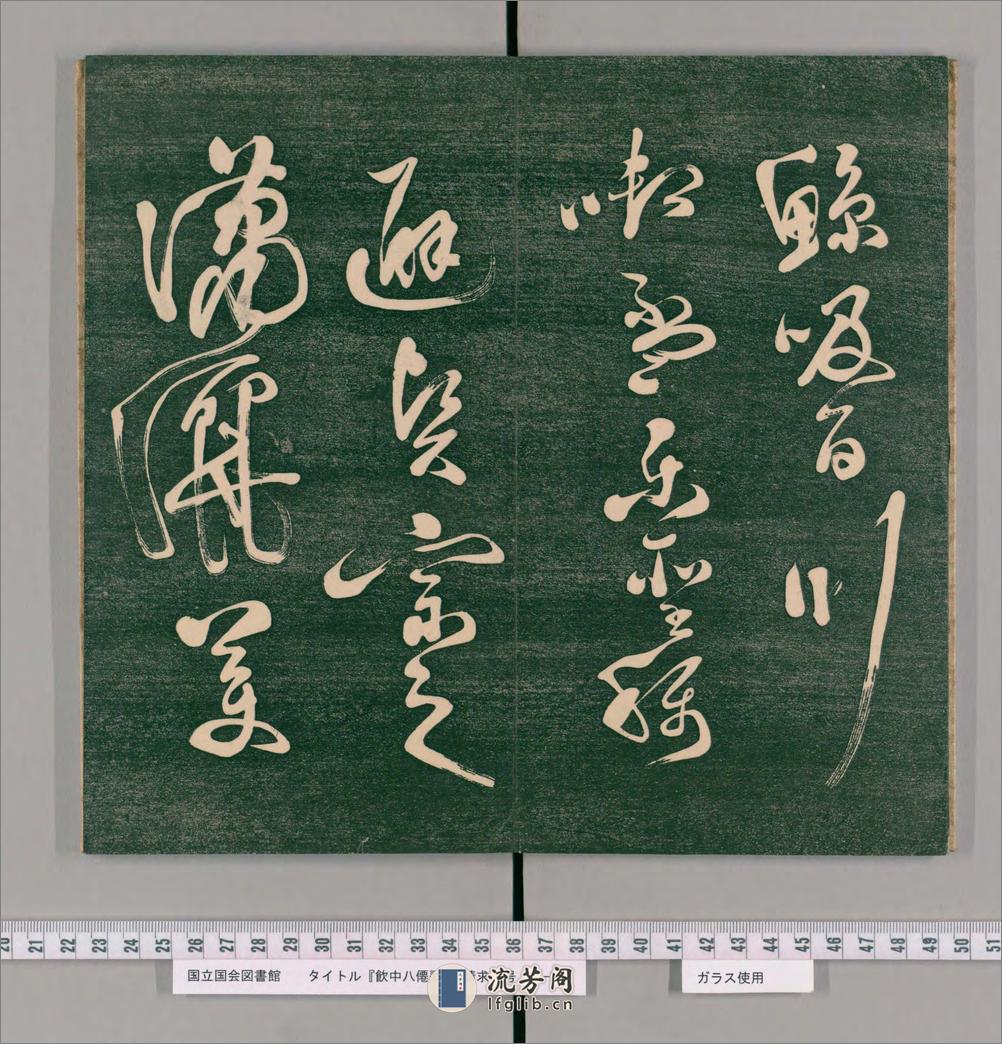 鯨吸百川
啣盃樂聖稱
避賢宗之
瀟灑美
20 21 22 23 24 25 26 27 28 29 30 31 32 33 34 35 36 37 38 39 40 41 42 43 44 45 46 47 48 49 50 51
国立国会図書館 タイトル『飲中八僊
ガラス使用
流芳阁
lfglib.cn